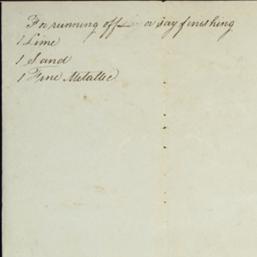 For running off — or day finishing
1 Lime
1 Sand
1 Fine Metallic